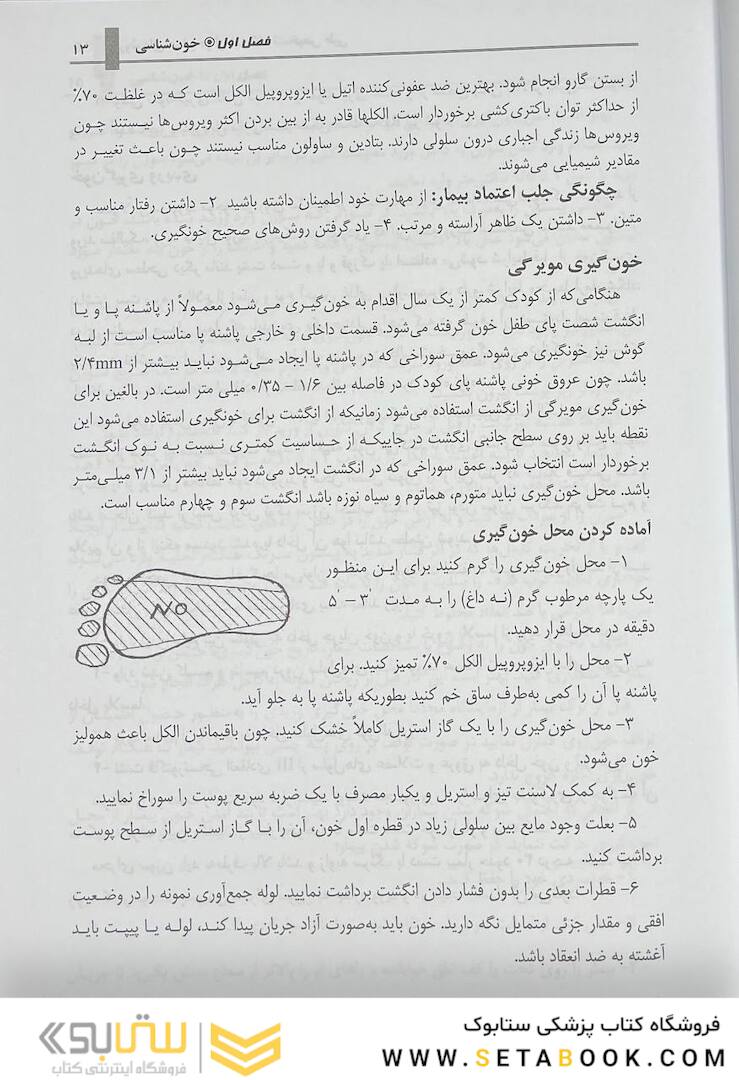 فصل اول ⦿ خون‌شناسی ۱۳
از بستن گارو انجام شود. بهترین ضد عفونی‌کننده اتیل یا ایزوپروپیل الکل است که در غلظت ۷۰٪
از حداکثر توان باکتری‌کشی برخوردار است. الکلها قادر به از بین بردن اکثر ویروس‌ها نیستند چون
ویروس‌ها زندگی اجباری درون سلولی دارند. بتادین و ساولون مناسب نیستند چون باعث تغییر در
مقادیر شیمیایی می‌شوند.
چگونگی جلب اعتماد بیمار: از مهارت خود اطمینان داشته باشید ۲- داشتن رفتار مناسب و
متین. ۳- داشتن یک ظاهر آراسته و مرتب. ۴- یاد گرفتن روش‌های صحیح خونگیری.
خون‌گیری مویرگی
هنگامی‌که از کودک کمتر از یک سال اقدام به خون‌گیری می‌شود معمولاً از پاشنه پا و یا
انگشت شصت پای طفل خون گرفته می‌شود. قسمت داخلی و خارجی پاشنه پا مناسب است از لبه
گوش نیز خونگیری می‌شود. عمق سوراخی که در پاشنه پا ایجاد می‌شود نباید بیشتر از ۲/۴mm
باشد. چون عروق خونی پاشنه پای کودک در فاصله بین ۱/۶ – ۰/۳۵ میلی متر است. در بالغین برای
خون‌گیری مویرگی از انگشت استفاده می‌شود زمانیکه از انگشت برای خونگیری استفاده می‌شود این
نقطه باید بر روی سطح جانبی انگشت در جاییکه از حساسیت کمتری نسبت به نوک انگشت
برخوردار است انتخاب شود. عمق سوراخی که در انگشت ایجاد می‌شود نباید بیشتر از ۳/۱ میلی‌متر
باشد. محل خون‌گیری نباید متورم، هماتوم و سیاه نوزه باشد انگشت سوم و چهارم مناسب است.
آماده کردن محل خون‌گیری
۱- محل خون‌گیری را گرم کنید برای این منظور
یک پارچه مرطوب گرم (نه داغ) را به مدت ۳′ – ۵′
دقیقه در محل قرار دهید.
NO
۲- محل را با ایزوپروپیل الکل ۷۰٪ تمیز کنید. برای
پاشنه پا آن را کمی به‌طرف ساق خم کنید بطوریکه پاشنه پا به جلو آید.
۳- محل خون‌گیری را با یک گاز استریل کاملاً خشک کنید. چون باقیماندن الکل باعث همولیز
خون می‌شود.
۴- به کمک لاسنت تیز و استریل و یکبار مصرف با یک ضربه سریع پوست را سوراخ نمایید.
۵- بعلت وجود مایع بین سلولی زیاد در قطره اول خون، آن را با گاز استریل از سطح پوست
برداشت کنید.
۶- قطرات بعدی را بدون فشار دادن انگشت برداشت نمایید. لوله جمع‌آوری نمونه را در وضعیت
افقی و مقدار جزئی متمایل نگه دارید. خون باید به‌صورت آزاد جریان پیدا کند، لوله یا پیپت باید
آغشته به ضد انعقاد باشد.
فروشگاه کتاب پزشکی ستابوک
WWW.SETABOOK.COM
ستابوک
فروشگاه اینترنتی کتاب